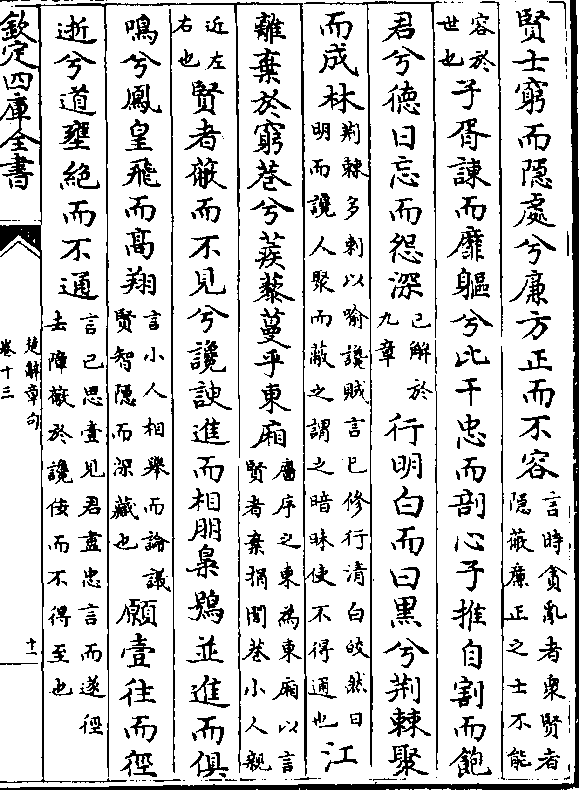 賢士窮而隱處兮廉方正而不容言時貪亂者衆賢者隱蔽廉正之士不能
容於世也子胥諫而靡軀兮比干忠而剖心子推自割而飽
君兮德日忘而怨深已解於九章行明白而曰黑兮荆棘聚
而成林荆棘多刺以喻讒賊言已修行清白皎然日明而讒人聚而蔽之謂之暗昧使不得通也江
離棄於窮巷兮蒺藜蔓乎東廂廧序之東為東廂以言賢者棄捐閭巷小人親
近左右也賢者蔽而不見兮讒諛進而相朋梟鴞並進而俱
鳴兮鳳皇飛而高翔言小人相舉而論議賢智隱而深藏也願壹往而徑
逝兮道壅絶而不通言已思壹見君盡忠言而遂徑去障蔽於讒佞而不得至也
欽定四庫全書
楚辭章句
卷十三
十一